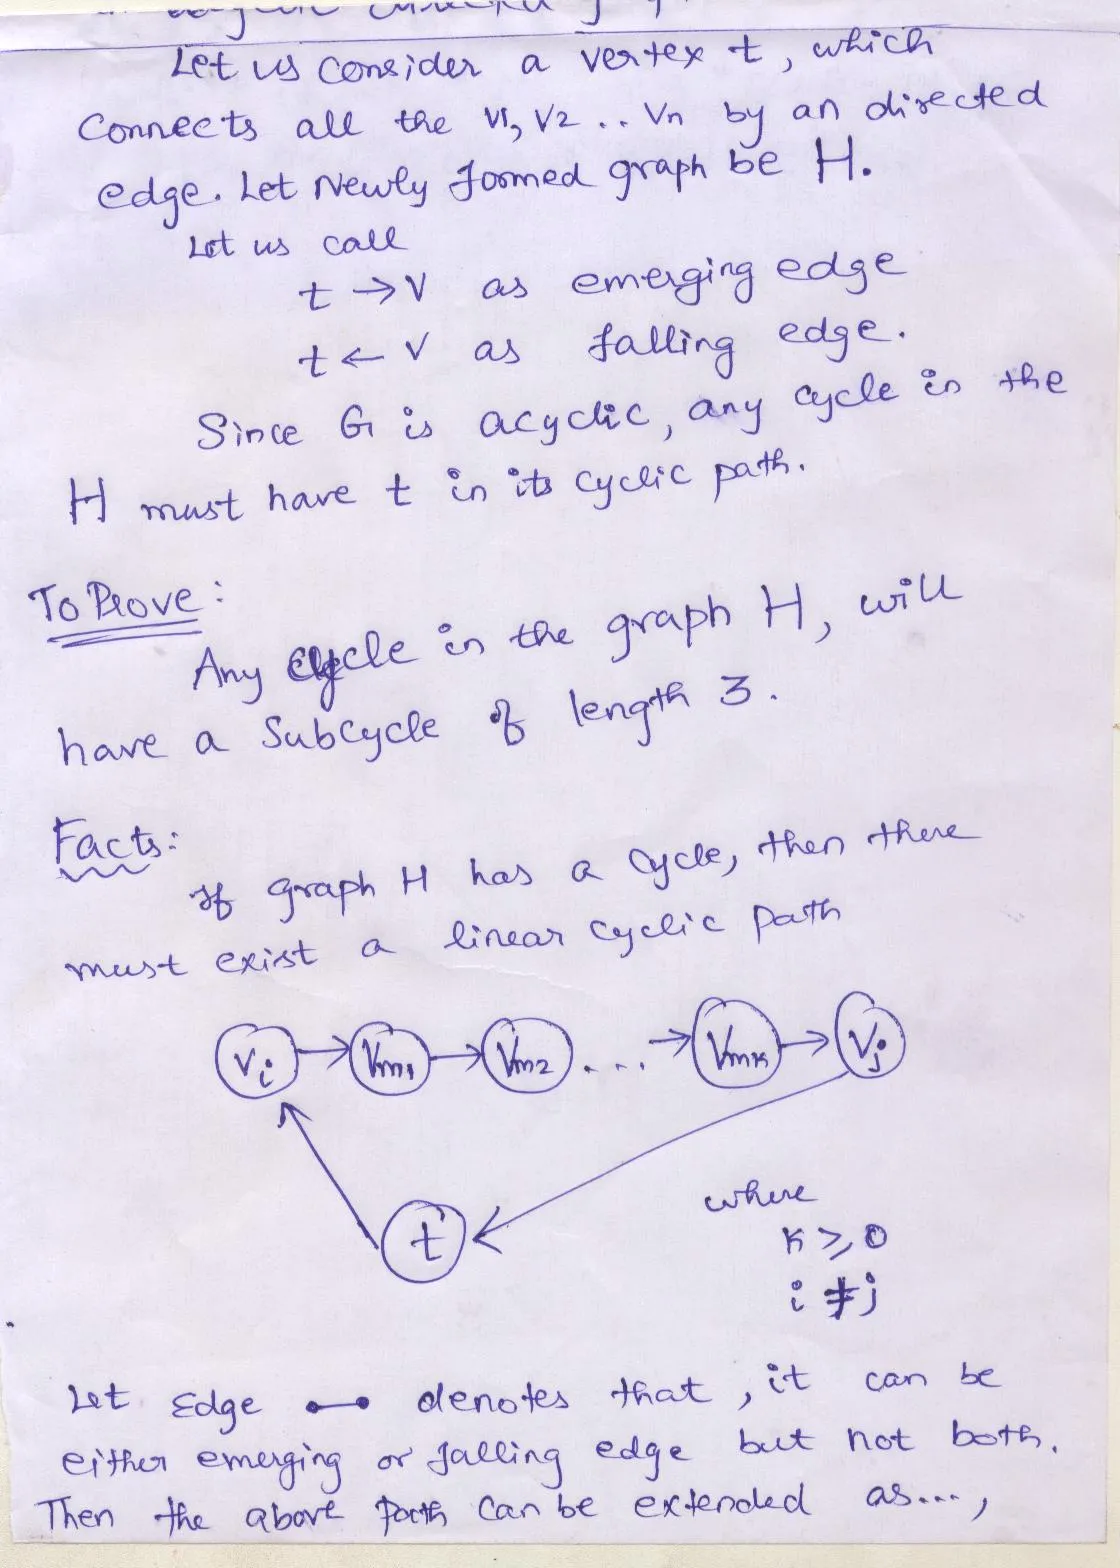 Let us consider a vertex t, which
connects all the v1, v2 .. vn by an directed
edge. Let Newly formed graph be H.
Let us call
t → v as emerging edge
t ← v as falling edge.
Since G is acyclic, any cycle in the
H must have t in its cyclic path.
To Prove:
Any cycle in the graph H, will
have a Subcycle of length 3.
Facts:
If graph H has a cycle, then there
must exist a linear cyclic path
Vi → Vm1 → Vm2 .... → Vmk → Vj
t
where
k ≥ 0
i ≠ j
Let Edge •—• denotes that, it can be
either emerging or falling edge but not both.
Then the above path can be extended as...,